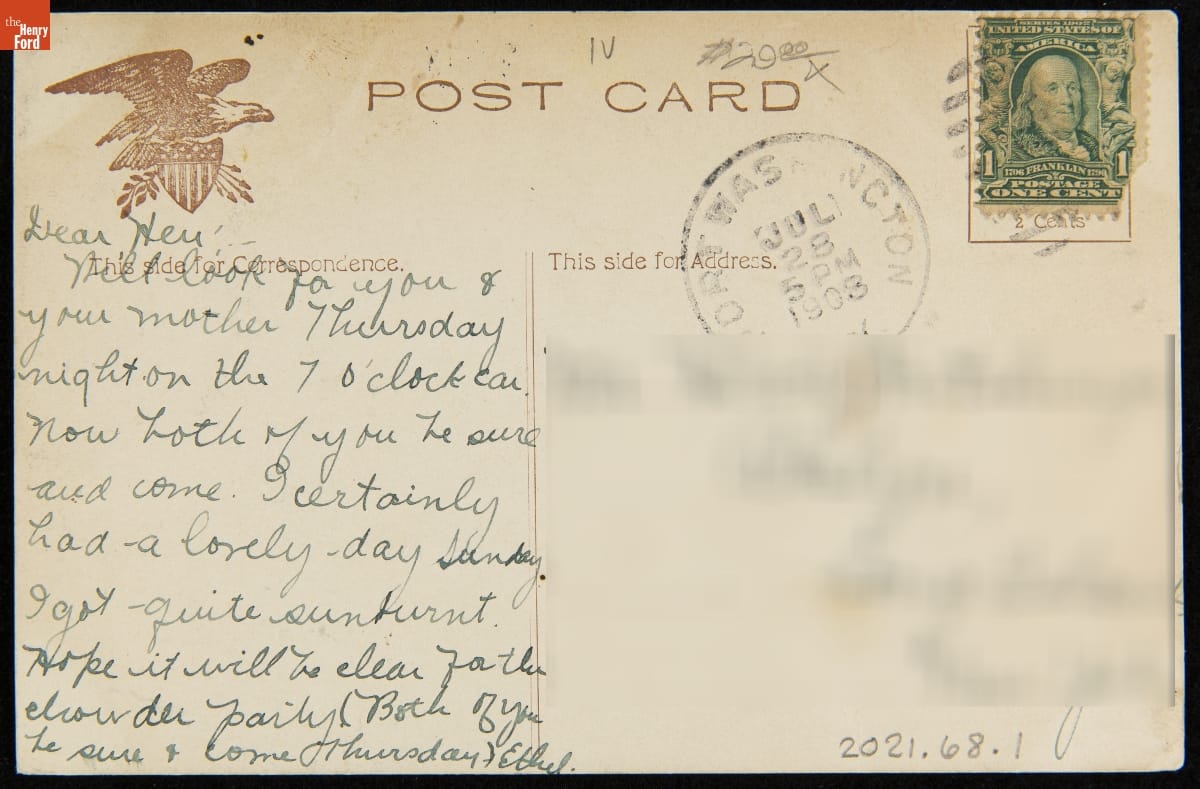 the
Henry
Ford
IV
$20.00
POST CARD
SERIES 1902
UNITED STATES OF
AMERICA
1 1
1706 FRANKLIN 1790
POSTAGE
ONE CENT
2 Cents
WASHINGTON
JUL
28
5 PM
1908
This side for Correspondence.
This side for Address.
Dear Hen:—
Will look for you &
your mother Thursday
night on the 7 o'clock car.
Now both of you be sure
and come. I certainly
had a lovely day Sunday
I got quite sunburnt.
Hope it will be clear for the
chowder party (Both of you
be sure & come Thursday) Ethel.
2021.68.1